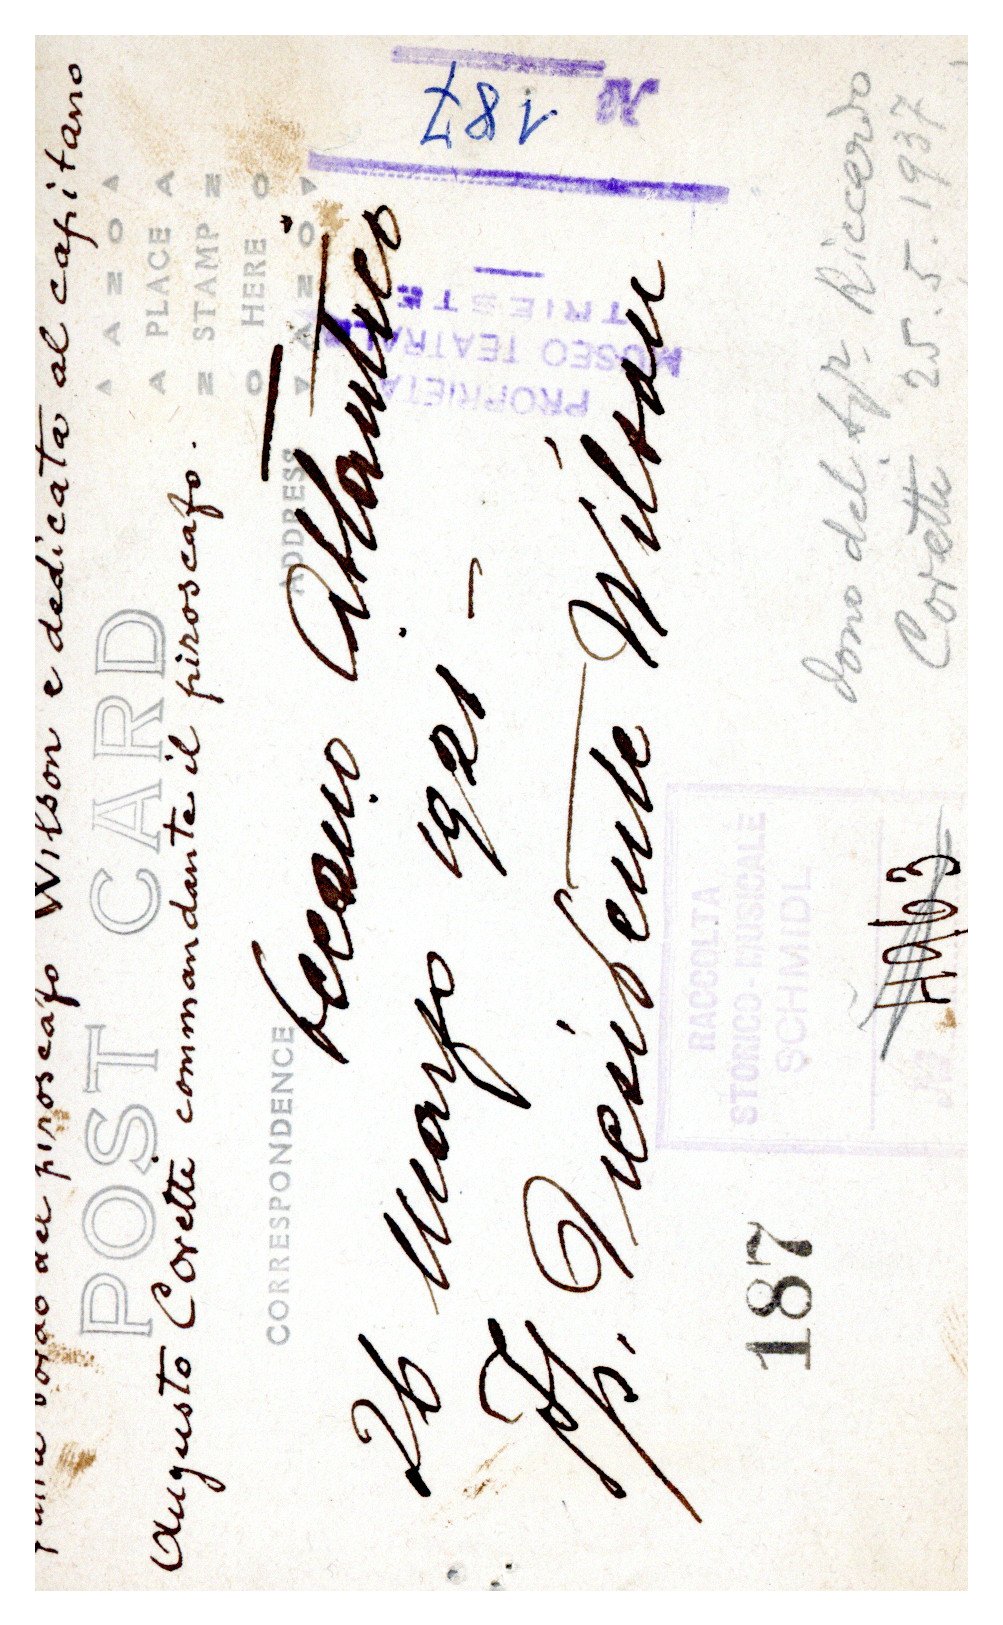 bordo del piroscafo Wilson e dedicata al capitano
Augusto Coretti commandante il piroscafo.
POST CARD
CORRESPONDENCE
ADDRESS
AZOA
PLACE
STAMP
HERE
AZO
Oceano Atlantico
26 Marzo 1921 -
Presidente Wilson
N
187
PROPRIETA
MUSEO TEATRALE
TRIESTE
RACCOLTA
STORICO-MUSICALE
SCHMIDL
187
dono del sig. Riccardo
Coretti 25.5.1937